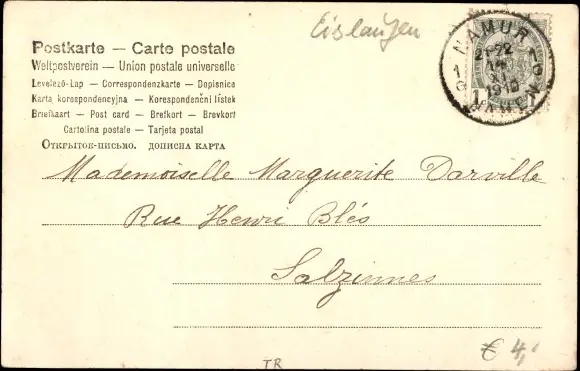 Eislaufen
Postkarte — Carte postale
Weltpostverein — Union postale universelle
Levelező-Lap — Correspondenzkarte — Dopisnice
Karta korespondencyjna — Korespondenční lístek
Briefkaart — Post card — Brefkort — Brevkort
Cartolina postale — Tarjeta postal
Открытое-письмо. дописна карта
NAMUR
1910
NAMEN
Mademoiselle Marguerite Darville
Rue Henri Blés
Salzinnes
TR
€ 4,-